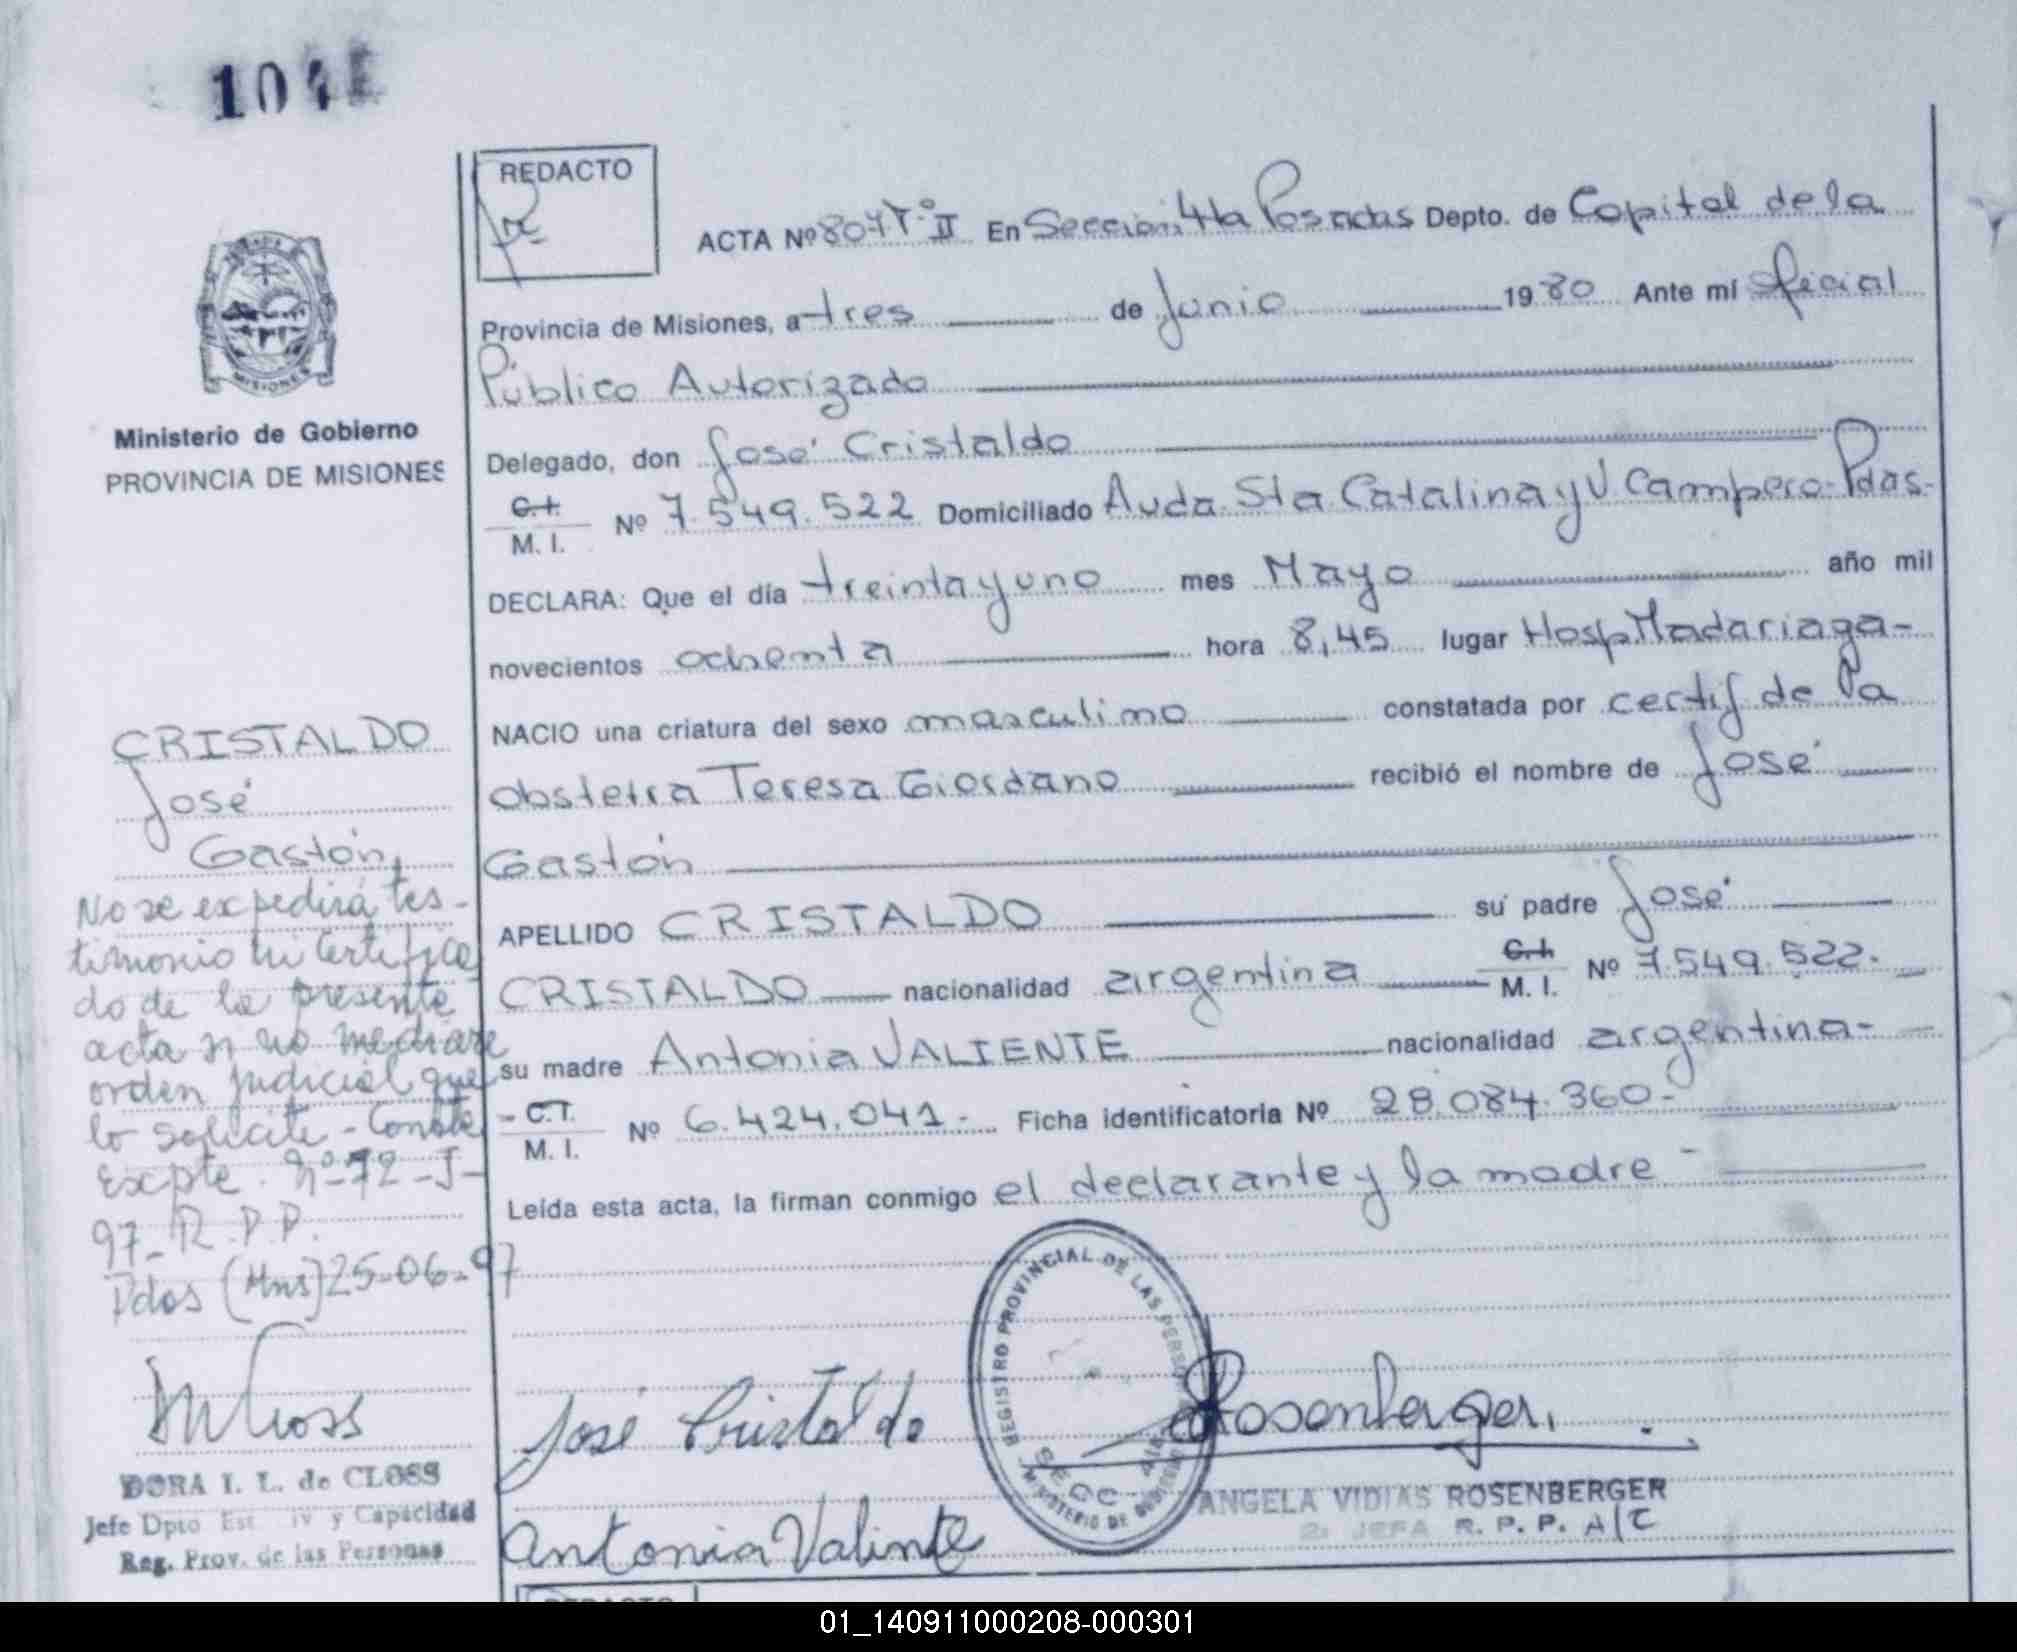 REDACTO
ACTA Nº 804 Tº II En Sección 4ta Posadas Depto. de Capital de la
Provincia de Misiones, a tres de Junio 1980 Ante mí Oficial
Público Autorizado
Delegado, don José Cristaldo
C.I. M. I. Nº 7.549.522 Domiciliado Avda. Sta Catalina y V. Campero-Pdas-
DECLARA: Que el día treinta y uno mes Mayo año mil
novecientos ochenta hora 8,45 lugar Hosp Madariaga-
NACIO una criatura del sexo masculino constatada por certif de la
obstetra Teresa Giordano recibió el nombre de José
Gastón
APELLIDO CRISTALDO su padre José
CRISTALDO nacionalidad argentina C.I. M. I. Nº 7.549.522.
su madre Antonia VALIENTE nacionalidad argentina-
C.I. M. I. Nº 6.424.041- Ficha identificatoria Nº 28.084.360-
Leída esta acta, la firman conmigo el declarante y la madre -
Ministerio de Gobierno
PROVINCIA DE MISIONES
MISIONES
CRISTALDO
José
Gastón
No se expedirá tes-
timonio ni Certifica
do de la presente
acta si no mediare
orden judicial que
lo solicite - Conste
Expte. Nº 72-J-
97- R.P.P.
Pdas (Mns) 25-06-97
DORA I. L. de CLOSS
Jefe Dpto Est Civ y Capacidad
Reg. Prov. de las Personas
José Cristaldo
Antonia Valinte
REGISTRO PROVINCIAL DE LAS PERSONAS
MINISTERIO DE GOBIERNO
SECC. 4ta
Rosenberger
ANGELA VIDIAS ROSENBERGER
2ª JEFA R. P. P. A/C
REDACTO
01_140911000208-000301